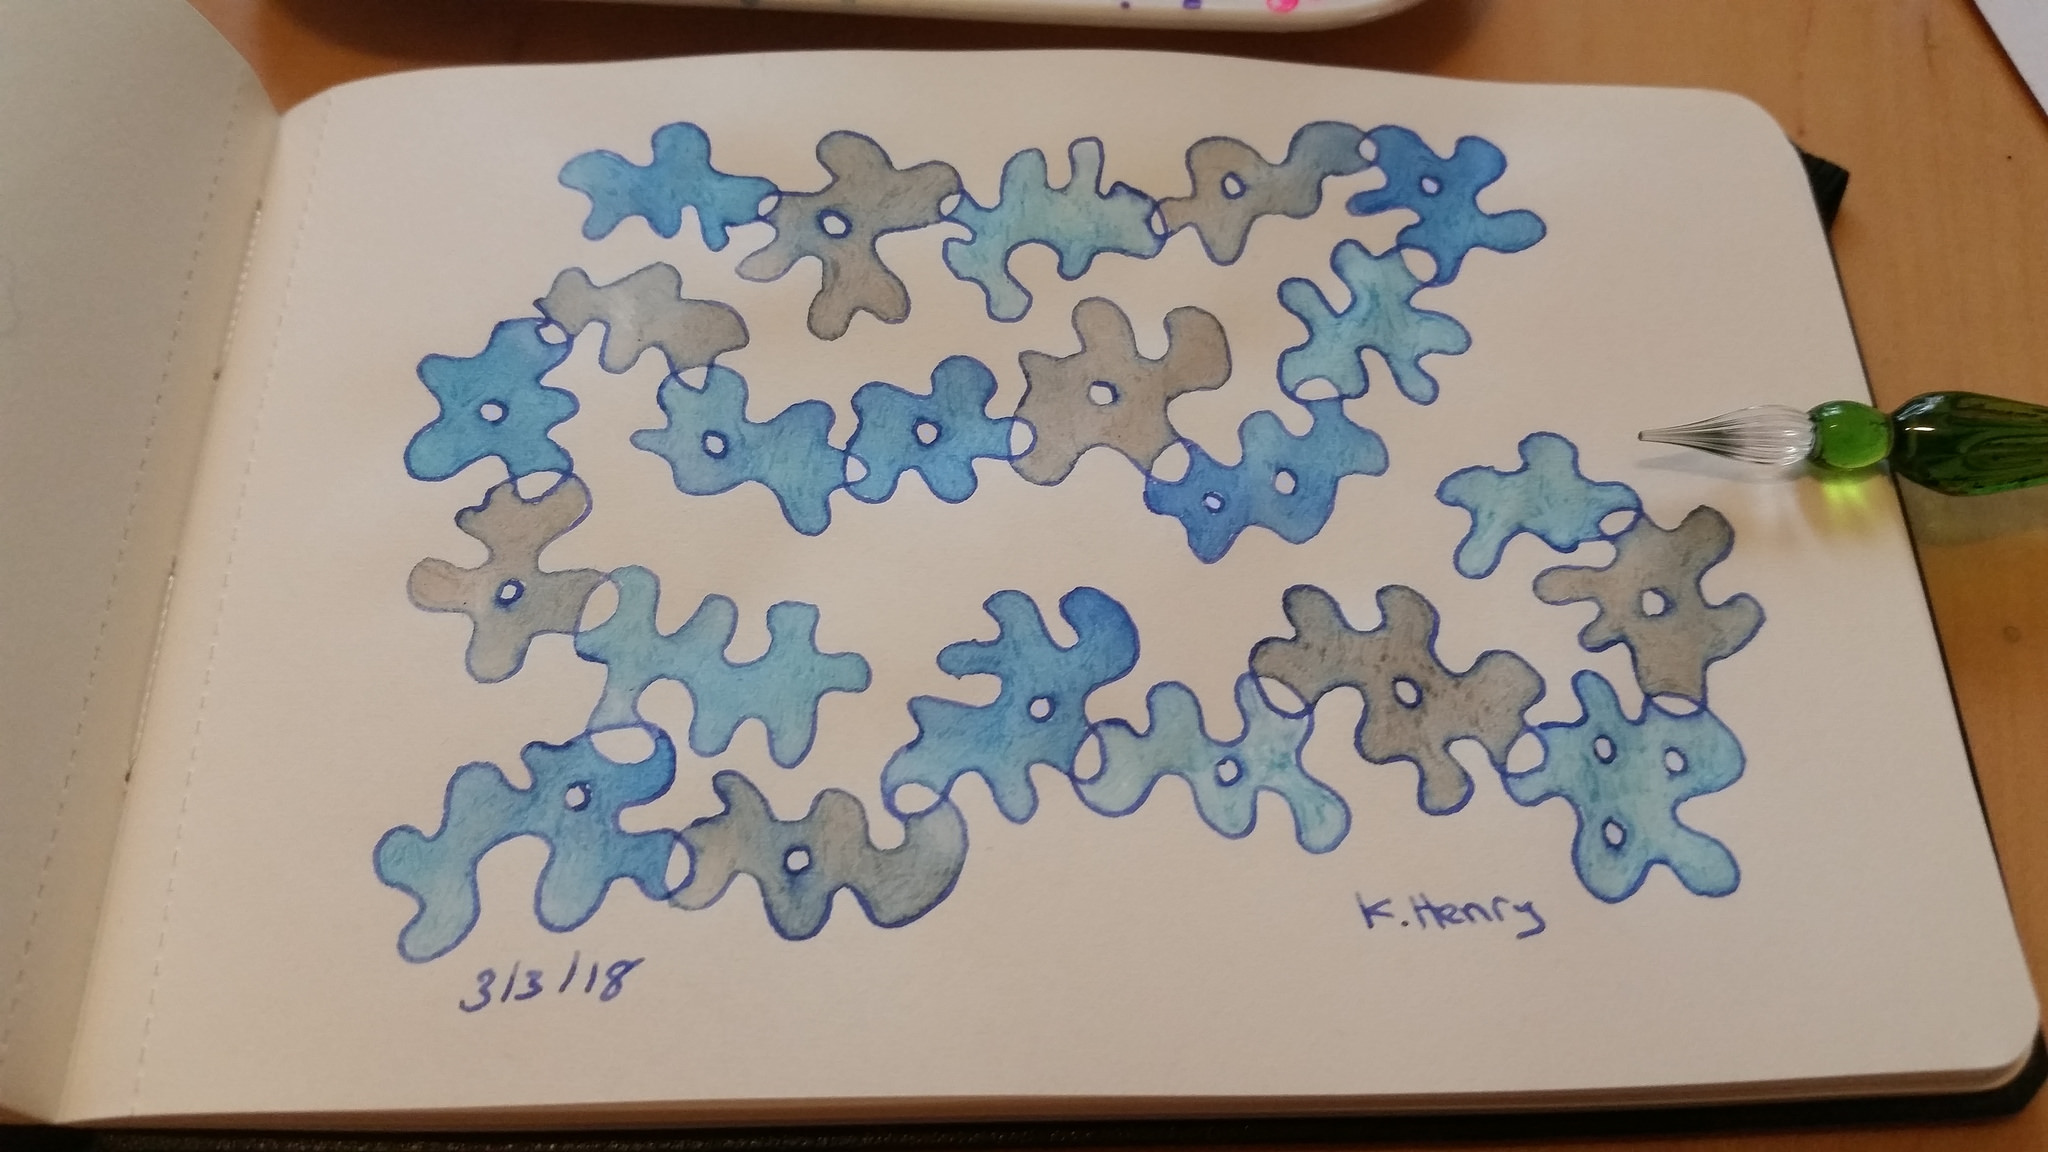 K. Henry
3/3/18